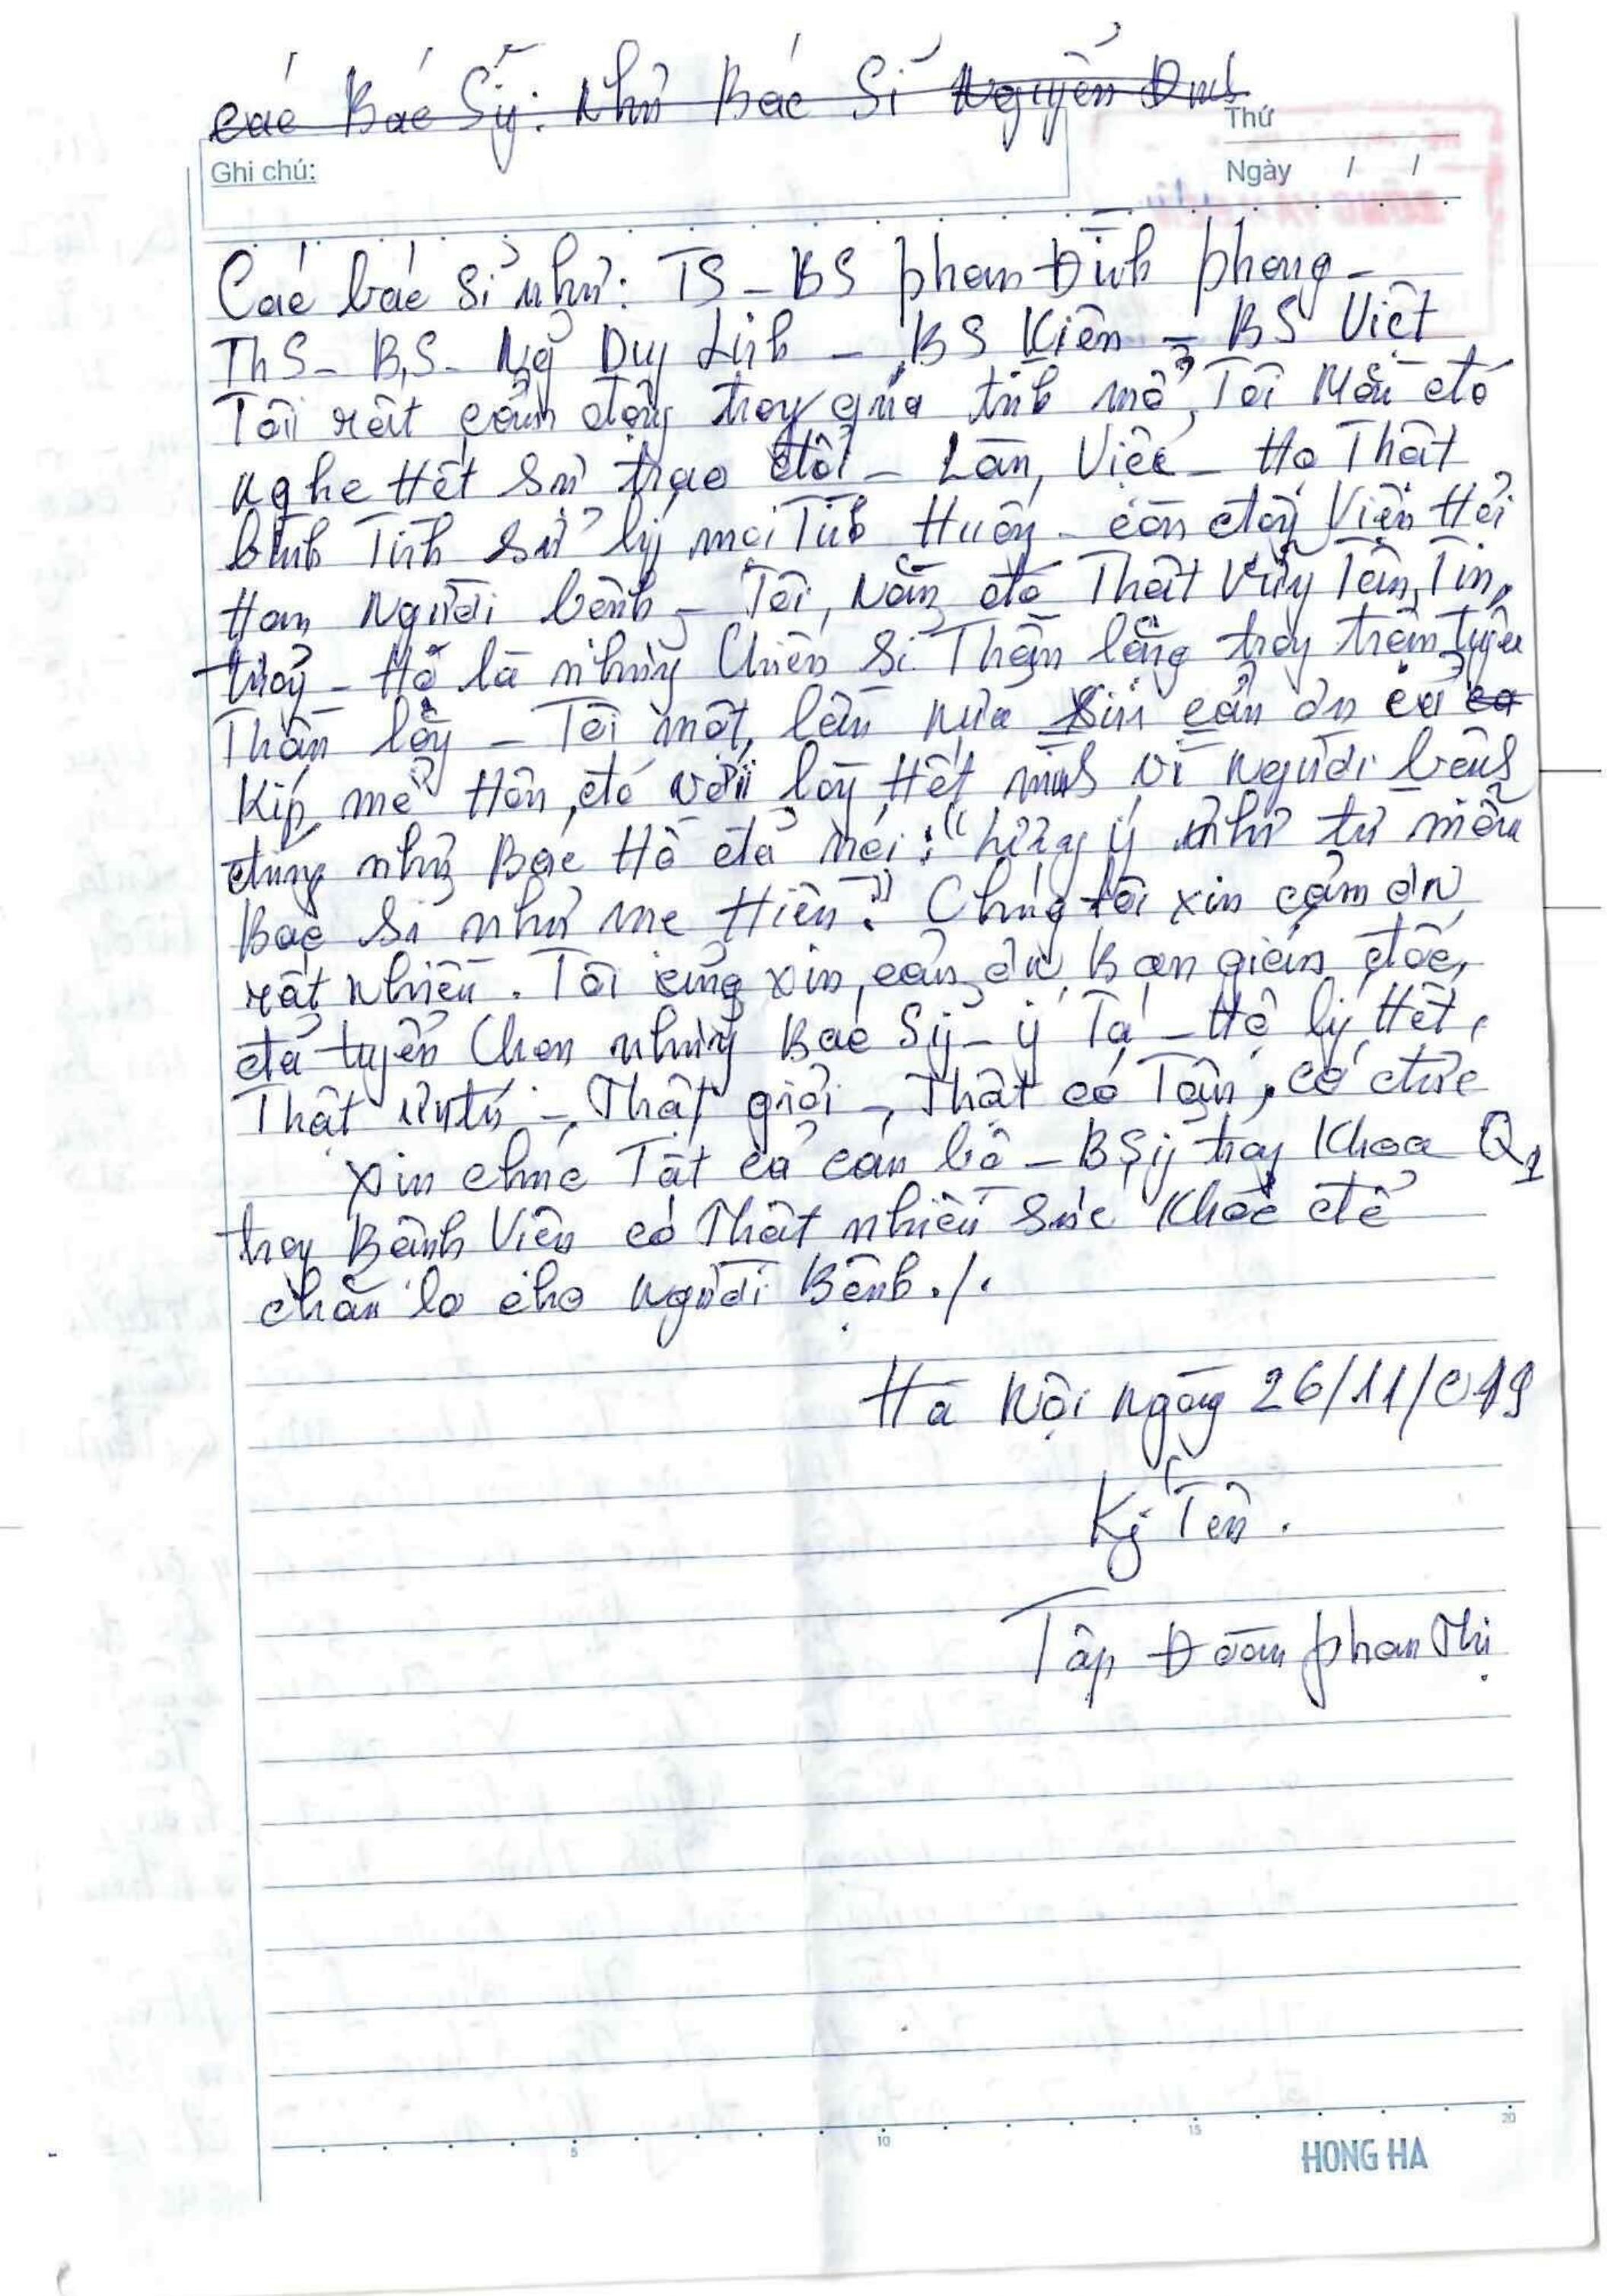 các Bác Sỹ: Như Bác Sĩ Nguyễn
Thứ
Ghi chú:
Ngày / /
Các bác sĩ như: TS - BS phan Đình phong -
ThS - BS - Ng Duy Linh - BS Kiên - BS Việt
Tôi rất cảm động trong quá trình mổ, Tôi nằm đó
nghe Hết sự trao đổi - Làm Việc - Họ Thật
bình Tĩnh sử lý mọi Tình Huống - còn động Viên Hỏi
Han Người bệnh - Tôi nằm đó Thật Vững Tâm, Tin,
tưởng - Họ là những Chiến Sĩ Thầm lặng trong trận tuyến
Thầm lặng - Tôi một lần nữa xin cảm ơn cả ca
Kíp mổ Hôm đó với lòng Hết mình vì người bệnh
đúng như Bác Hồ đã nói: "Lương y như từ mẫu
Bác sĩ như mẹ Hiền." Chúng tôi xin cảm ơn
rất nhiều. Tôi cũng xin cảm ơn Ban giám đốc,
đã tuyển Chọn những Bác Sỹ - y Tá - Hộ lý Hết,
Thật ưu tú - Thật giỏi - Thật có Tâm, có đức
xin chúc Tất cả cán bộ - BSỹ trong Khoa Q1
trong Bệnh Viện có Thật nhiều Sức Khỏe để
chăm lo cho người Bệnh./.
Hà Nội ngày 26/11/019
Ký Tên.
Tập Đoàn phan Thị
5 10 15 20
HONG HA